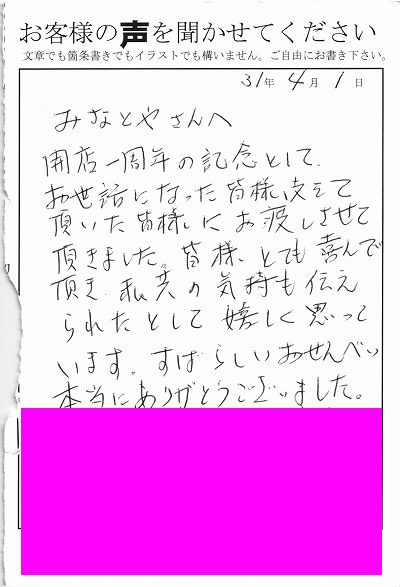 お客様の声を聞かせてください
文章でも箇条書きでもイラストでも構いません。ご自由にお書き下さい。
31年 4月 1日
みなとやさんへ
開店一周年の記念として、
お世話になった皆様、支えて
頂いた皆様にお渡しさせて
頂きました。皆様、とても喜んで
頂き、私共の気持も伝え
られたとして嬉しく思って
います。すばらしいおせんべい
本当にありがとうございました。